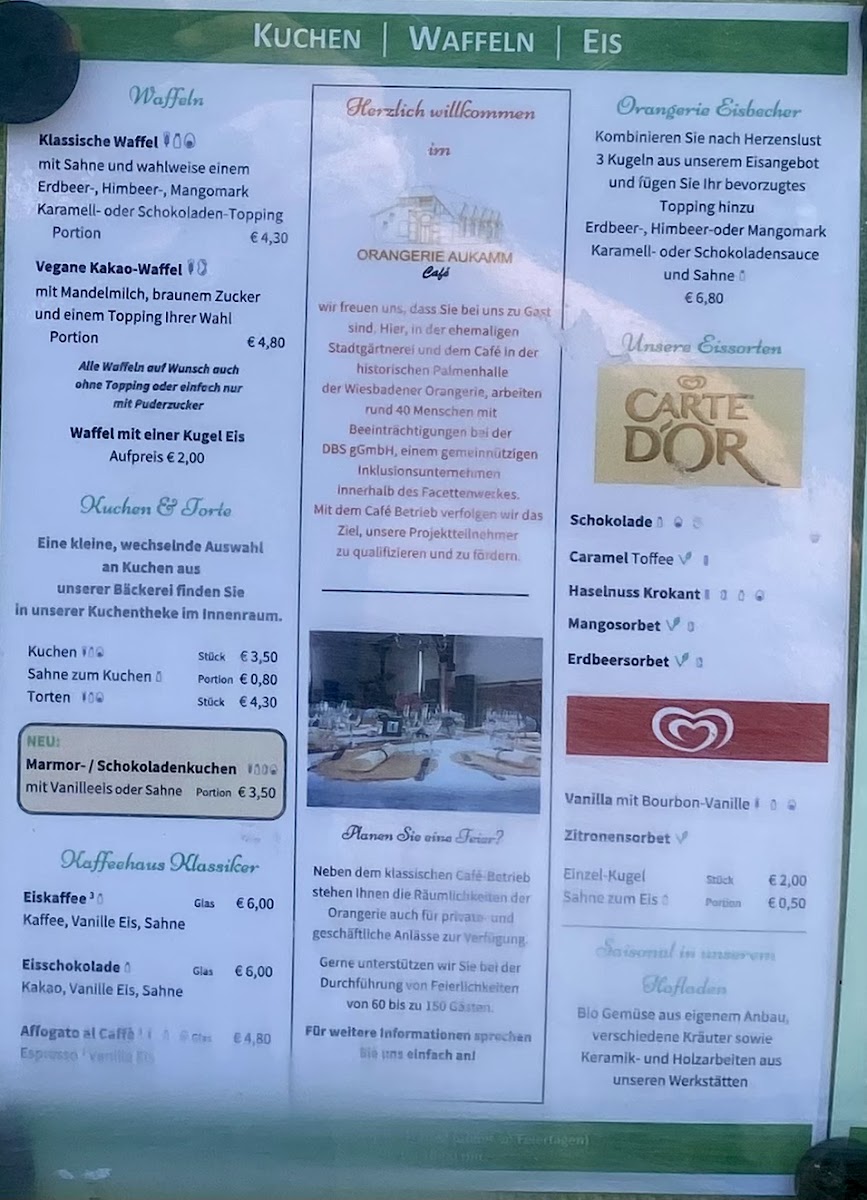 KUCHEN | WAFFELN | EIS
Waffeln
Klassische Waffel
mit Sahne und wahlweise einem
Erdbeer-, Himbeer-, Mangomark
Karamell- oder Schokoladen-Topping
Portion € 4,30
Vegane Kakao-Waffel
mit Mandelmilch, braunem Zucker
und einem Topping Ihrer Wahl
Portion € 4,80
Alle Waffeln auf Wunsch auch
ohne Topping oder einfach nur
mit Puderzucker
Waffel mit einer Kugel Eis
Aufpreis € 2,00
Kuchen & Torte
Eine kleine, wechselnde Auswahl
an Kuchen aus
unserer Bäckerei finden Sie
in unserer Kuchentheke im Innenraum.
Kuchen Stück € 3,50
Sahne zum Kuchen Portion € 0,80
Torten Stück € 4,30
NEU:
Marmor- / Schokoladenkuchen
mit Vanilleeis oder Sahne Portion € 3,50
Kaffeehaus Klassiker
Eiskaffee ³ Glas € 6,00
Kaffee, Vanille Eis, Sahne
Eisschokolade Glas € 6,00
Kakao, Vanille Eis, Sahne
Affogato al Caffè Glas € 4,80
Espresso Vanille Eis
Herzlich willkommen
im
ORANGERIE AUKAMM
Café
wir freuen uns, dass Sie bei uns zu Gast
sind. Hier, in der ehemaligen
Stadtgärtnerei und dem Café in der
historischen Palmenhalle
der Wiesbadener Orangerie, arbeiten
rund 40 Menschen mit
Beeinträchtigungen bei der
DBS gGmbH, einem gemeinnützigen
Inklusionsunternehmen
innerhalb des Facettenwerkes.
Mit dem Café Betrieb verfolgen wir das
Ziel, unsere Projektteilnehmer
zu qualifizieren und zu fördern.
Planen Sie eine Feier?
Neben dem klassischen Café-Betrieb
stehen Ihnen die Räumlichkeiten der
Orangerie auch für private und
geschäftliche Anlässe zur Verfügung.
Gerne unterstützen wir Sie bei der
Durchführung von Feierlichkeiten
von 60 bis zu 150 Gästen.
Für weitere Informationen sprechen
Sie uns einfach an!
Orangerie Eisbecher
Kombinieren Sie nach Herzenslust
3 Kugeln aus unserem Eisangebot
und fügen Sie Ihr bevorzugtes
Topping hinzu
Erdbeer-, Himbeer-oder Mangomark
Karamell- oder Schokoladensauce
und Sahne
€ 6,80
Unsere Eissorten
CARTE
D'OR
Schokolade
Caramel Toffee
Haselnuss Krokant
Mangosorbet
Erdbeersorbet
Vanilla mit Bourbon-Vanille
Zitronensorbet
Einzel-Kugel Stück € 2,00
Sahne zum Eis Portion € 0,50
Saisonal in unserem
Hofladen
Bio Gemüse aus eigenem Anbau,
verschiedene Kräuter sowie
Keramik- und Holzarbeiten aus
unseren Werkstätten
Feiertagen)